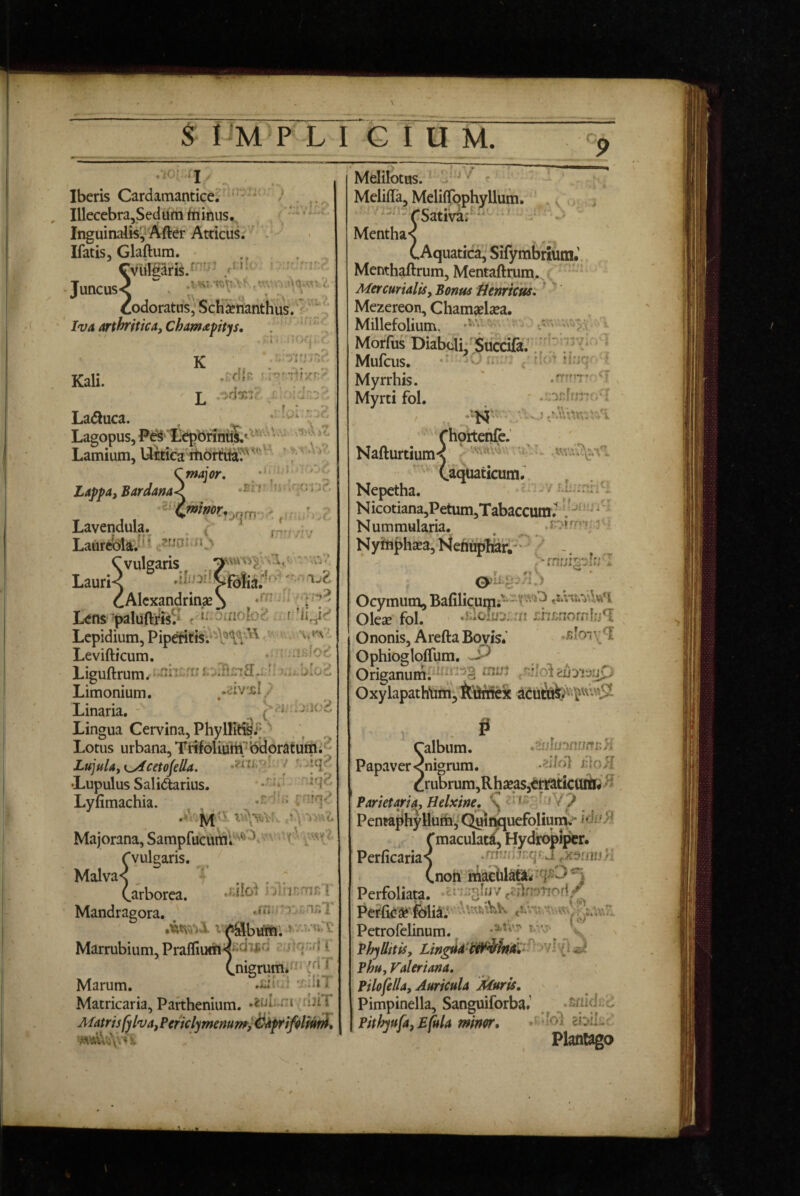 SIMPLICIUM. 9
I
Iberis Cardamantice.
Illecebra,Sedum minus.
Inguinalis, After Atticus.
Isatis, Glastum.
Juncus
vulgaris.
odoratus, Schænanthus.
Iva arthritica, Chamæpitys.
K
Kali.
L
Lactuca.
Lagopus, Pes Leporinus.
Lamium, Urtica mortua.
Lappa, Bardana
major.
minor.
Lavendula.
Laureola.
Lauri
vulgaris
Alexandrinæ
folia.
Lens palustris.
Lepidium, Piperitis.
Levisticum.
Ligustrum.
Limonium.
Linaria.
Lingua Cervina, Phyllitis.
Lotus urbana, Trifolium odoratum.
Lujula, Acetosella.
Lupulus Salictarius.
Lysimachia.
M
Majorana, Sampsucum.
Malva
vulgaris.
arborea.
Mandragora.
Marrubium, Prassium
Album.
nigrum.
Marum.
Matricaria, Parthenium.
Matrisylva, Periclymenum, Caprifolium.
Melilotus.
Melissa, Melissophyllum.
Mentha
Sativa.
Aquatica, Sisymbrium.
Menthastrum, Mentastrum.
Mercurialis, Bonus Henricus.
Mezereon, Chamælæa.
Millefolium.
Morsus Diaboli, Succisa.
Muscus.
Myrrhis.
Myrti fol.
N
Nasturtium
hortense.
aquaticum.
Nepetha.
Nicotiana,Petum,Tabaccum.
Nummularia.
Nymphæa, Nenuphar.
O
Ocymum, Basilicum.
Oleæ fol.
Ononis, Aresta Bovis.
Ophioglossum.
Origanum.
Oxylapathum, Rumex acutus.
P
Papaver
album.
nigrum.
rubrum,Rhæas,erraticum.
Parietaria, Helxine.
Pentaphyllum, Quinquefolium.
Persicaria
maculata, Hydropiper.
non maculata.
Perfoliata.
Persicæ folia.
Petroselinum.
Phyllitis, Lingua cervina.
Phu, Valeriana.
Pilosella, Auricula Muris.
Pimpinella, Sanguisorba.
Pithyusa, Esula minor.
Plantago